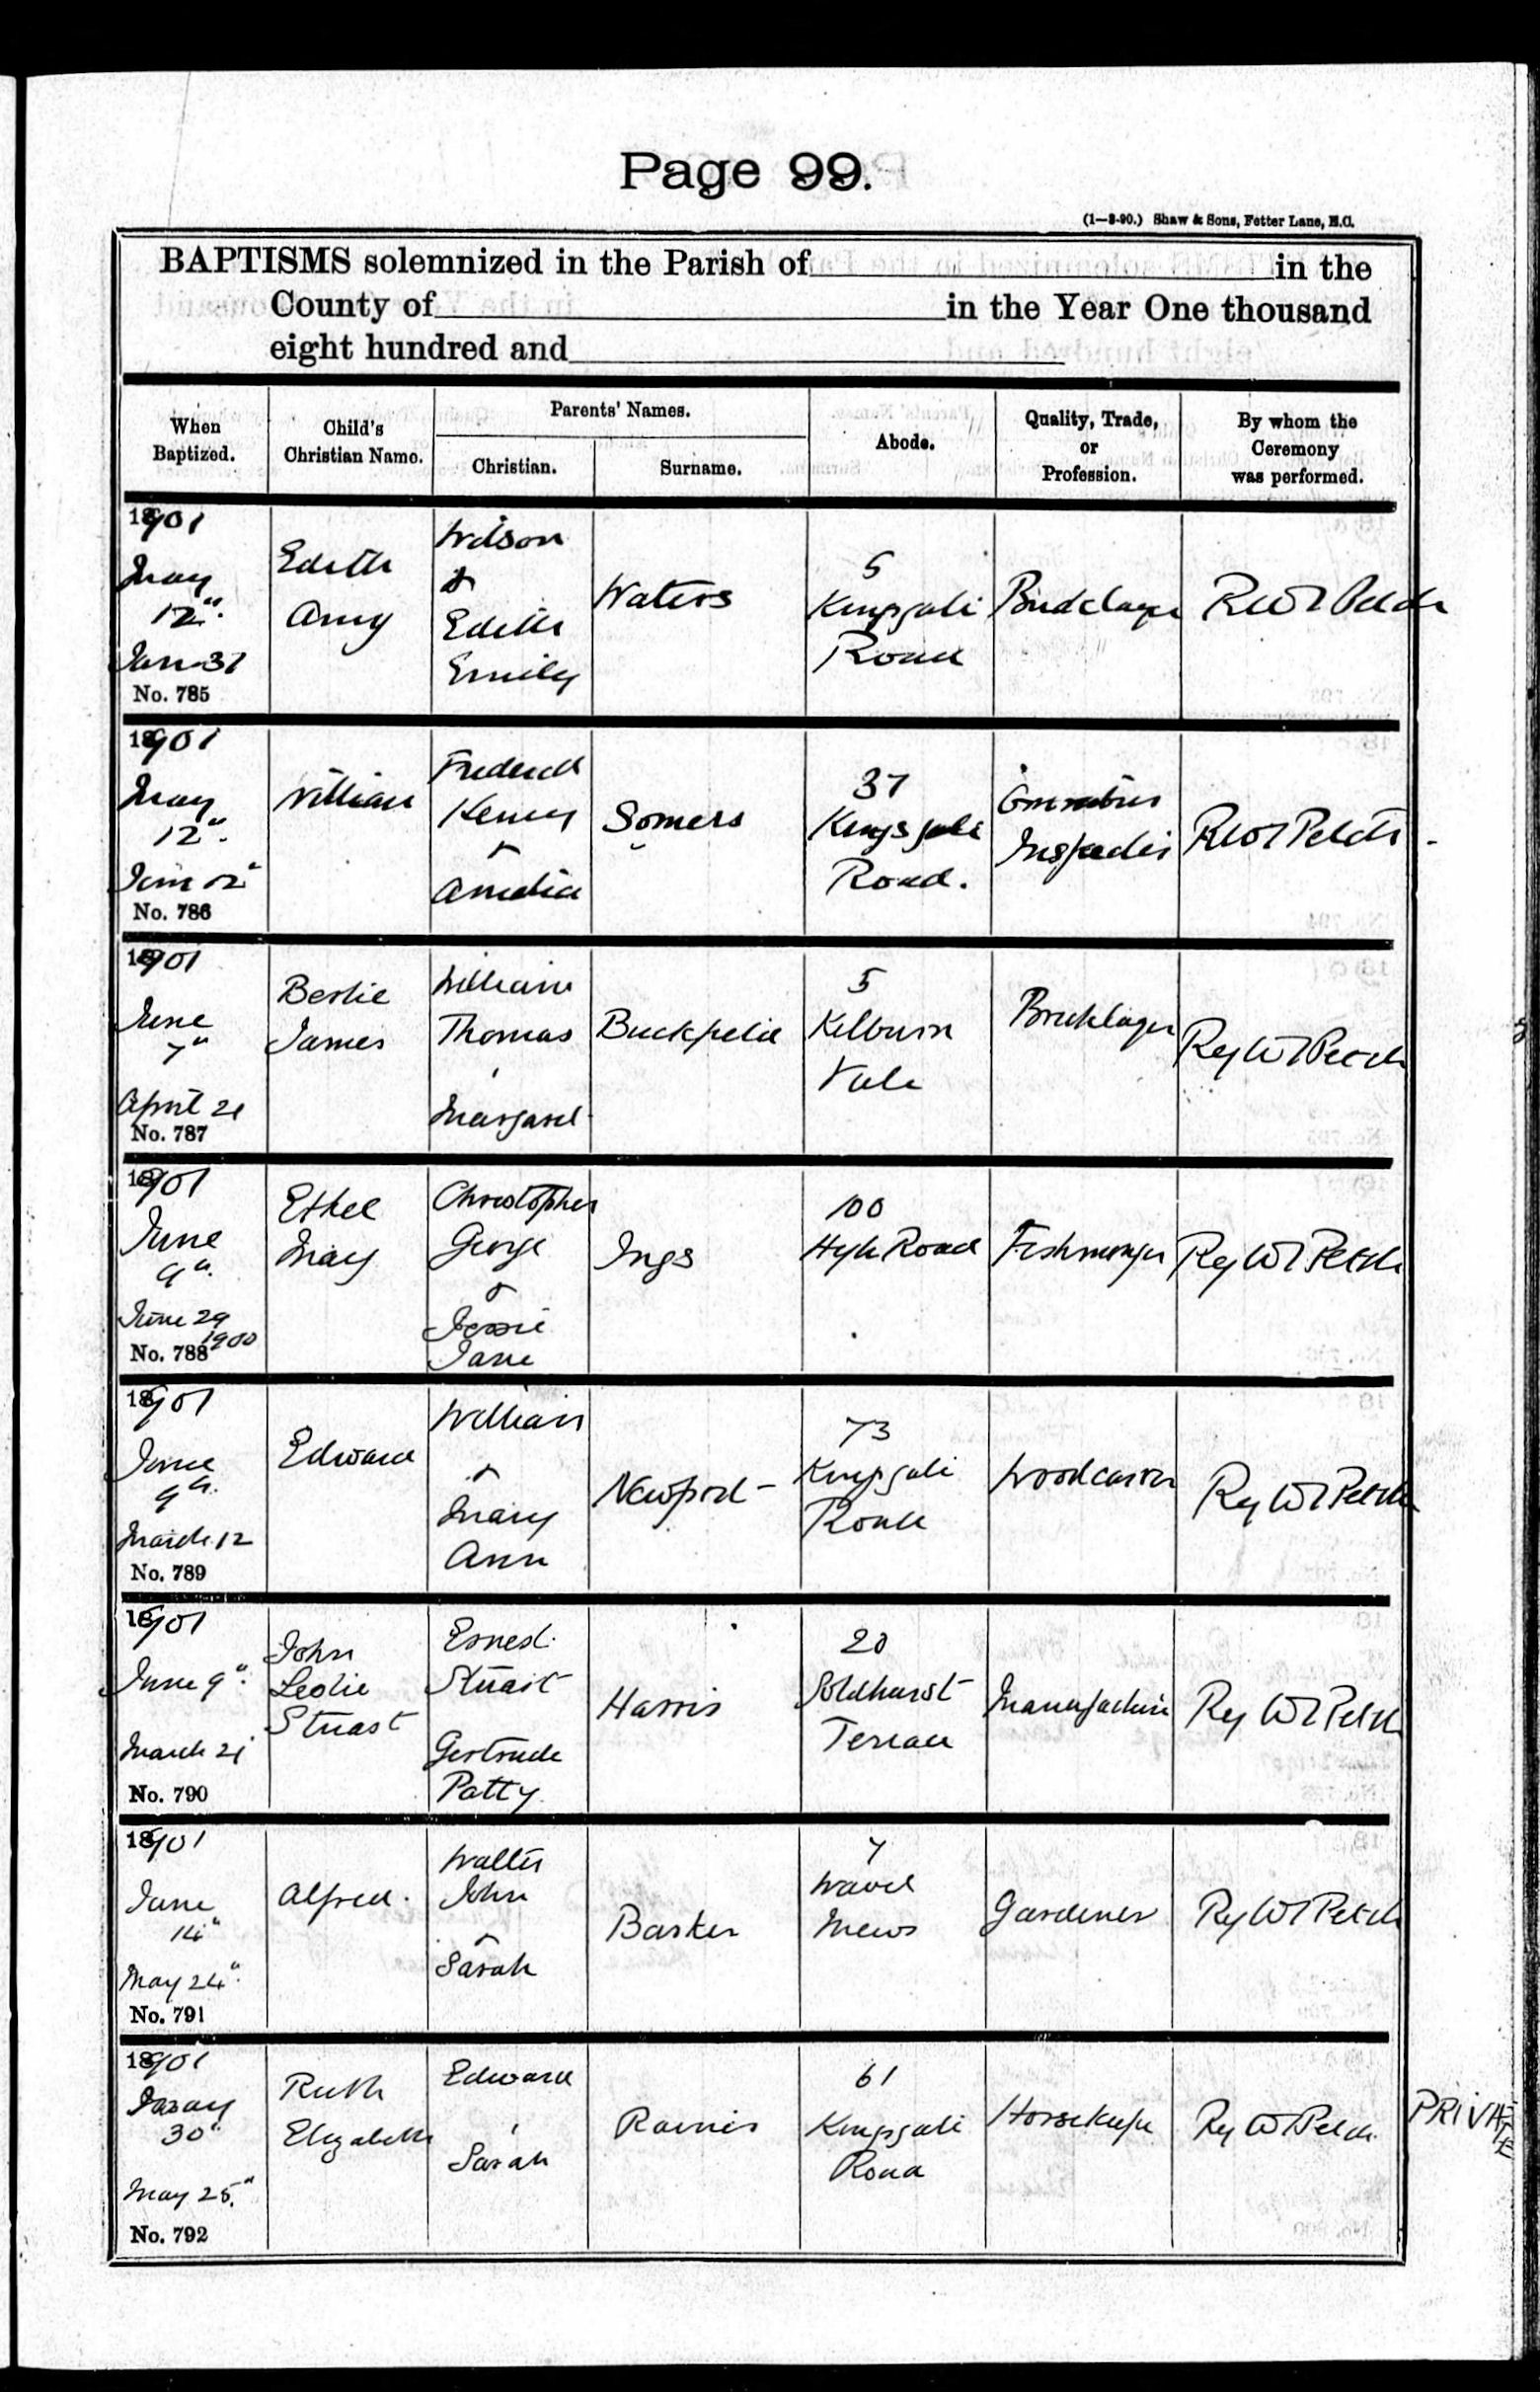 Page 99.
(1—8-90.) Shaw & Sons, Fetter Lane, E.C.
BAPTISMS solemnized in the Parish of in the
County of in the Year One thousand
eight hundred and
When Baptized.
Child's Christian Name.
Parents' Names.
Christian.
Surname.
Abode.
Quality, Trade, or Profession.
By whom the Ceremony was performed.
1901
May
12th
Jan 31
No. 785
Edith
Amy
Wilson
&
Edith
Emily
Waters
5
Kingsgate
Road
Bricklayer
R W T Petch
1901
May
12th
No. 786
William
Frederick
Henry
&
Amelia
Somers
37
Kingsgate
Road.
Omnibus
Inspector
R W T Petch
1901
June
7th
April 21
No. 787
Bertie
James
William
Thomas
Margaret
Buckfield
5
Kilburn
Vale
Bricklayer
Reg W T Petch
1901
June
9th
June 29
1900
No. 788
Ethel
May
Christopher
George
&
Jessie
Jane
Ings
100
High Road
Fishmonger
Reg W T Petch
1901
June
9th
March 12
No. 789
Edward
William
&
Mary
Ann
Newport
73
Kingsgate
Road
Woodcarver
Reg W T Petch
1901
June 9th
March 21
No. 790
John
Leslie
Stuart
Ernest
Stuart
Gertrude
Patty
Harris
20
Goldhurst
Terrace
Manufacturer
Reg W T Petch
1901
June
14th
May 24th
No. 791
Alfred
Walter
John
&
Sarah
Barker
7
Wavel
Mews
Gardener
Reg W T Petch
1901
May
30th
May 25th
No. 792
Ruth
Elizabeth
Edward
Sarah
61
Kingsgate
Road
Horsekeeper
Reg W T Petch
PRIVATE